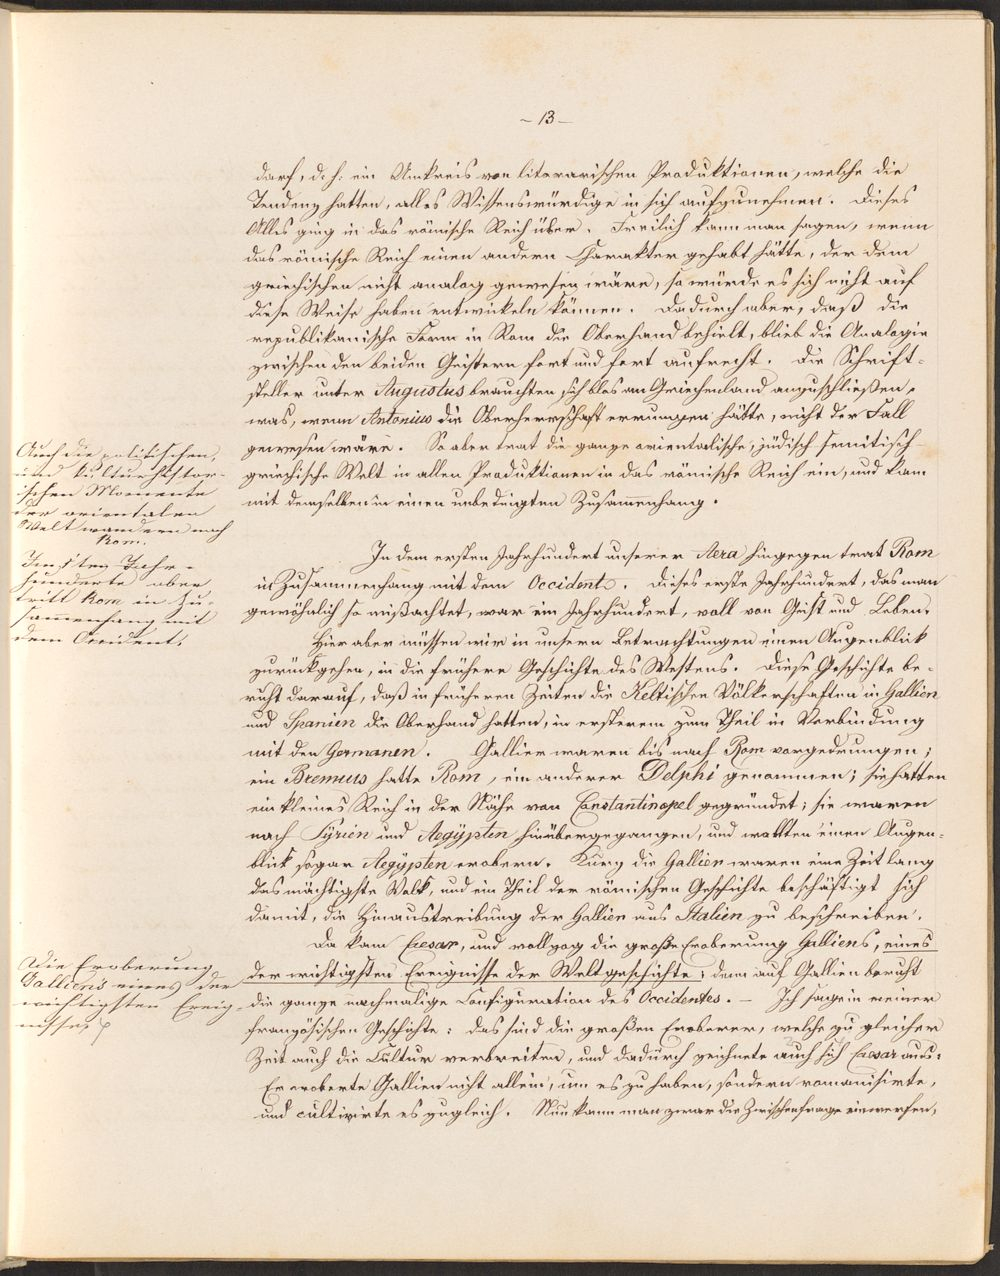 – 13 –
darf, d. h. ein Umkreis von literarischen Produktionen, welche die
Tendenz hatten, alles Wissenswürdige in sich aufzunehmen. Dieses
Alles ging in das römische Reich über. Freilich kann man sagen, wenn
das römische Reich einen andern Charakter gehabt hätte, der dem
griechischen nicht analog gewesen wäre, so würde es sich nicht auf
diese Weise haben entwickeln können. Dadurch aber, daß die
republikanische Form in Rom die Oberhand behielt, blieb die Analogie
zwischen den beiden Geistern fort und fort aufrecht. Die Schrift-
steller unter Augustus brauchten sich blos an Griechenland anzuschließen,
was, wenn Antonius die Oberherrschaft errungen hätte, nicht der Fall
gewesen wäre. So aber trat die ganze orientalische, jüdisch semitisch
griechische Welt in allen Produktionen in das römische Reich ein, und kam
mit demselben in einen unbedingten Zusammenhang.
Auch die politischen,
und kulturhistor-
ischen Momente
der orientalen
Welt wandern nach
Rom.
In dem ersten Jahrhundert unserer Aera hingegen trat Rom
in Zusammenhang mit dem Occident. Dieses erste Jahrhundert, das man
gewöhnlich so mißachtet, war ein Jahrhundert, voll von Geist und Leben.
Im 1sten Jahr-
hunderte aber
tritt Rom in Zu-
samenhang mit
dem Occident.
Hier aber müssen wir in unsern Betrachtungen einen Augenblick
zurückgehen, in die frühere Geschichte des Westens. Diese Geschichte be-
ruht darauf, daß in früheren Zeiten die Keltischen Völkerschaften in Gallien
und Spanien die Oberhand hatten, in ersterem zum Theil in Verbindung
mit den Germanen. Gallier waren bis nach Rom vorgedrungen;
ein Brennus hatte Rom, ein anderer Delphi genommen; sie hatten
ein kleines Reich in der Nähe von Constantinopel gegründet; sie waren
nach Syrien und Aegypten hinübergegangen, und wollten einen Augen-
blick sogar Aegypten erobern. Kurz die Gallier waren eine Zeit lang
das mächtigste Volk, und ein Theil der römischen Geschichte beschäftigt sich
damit, die Hinaustreibung der Gallier aus Italien zu beschreiben.
Da kam Caesar, und vollzog die große Eroberung Galliens, eines
der wichtigsten Ereignisse der Weltgeschichte; denn auf Gallien beruht
die ganze nachmalige Configuration des Occidentes. – Ich sage in meiner
französischen Geschichte: das sind die großen Eroberer, welche zu gleicher
Zeit auch die Cultur verbreiten, und dadurch zeichnete auch sich Caesar aus:
Er eroberte Gallien nicht allein, um es zu haben, sondern romanisirte,
und cultivirte es zugleich. Nun kann man zwar die Zwischenfrage einwerfen,
die Eroberung
Galliens eines der
wichtigsten Ereig-
nisse